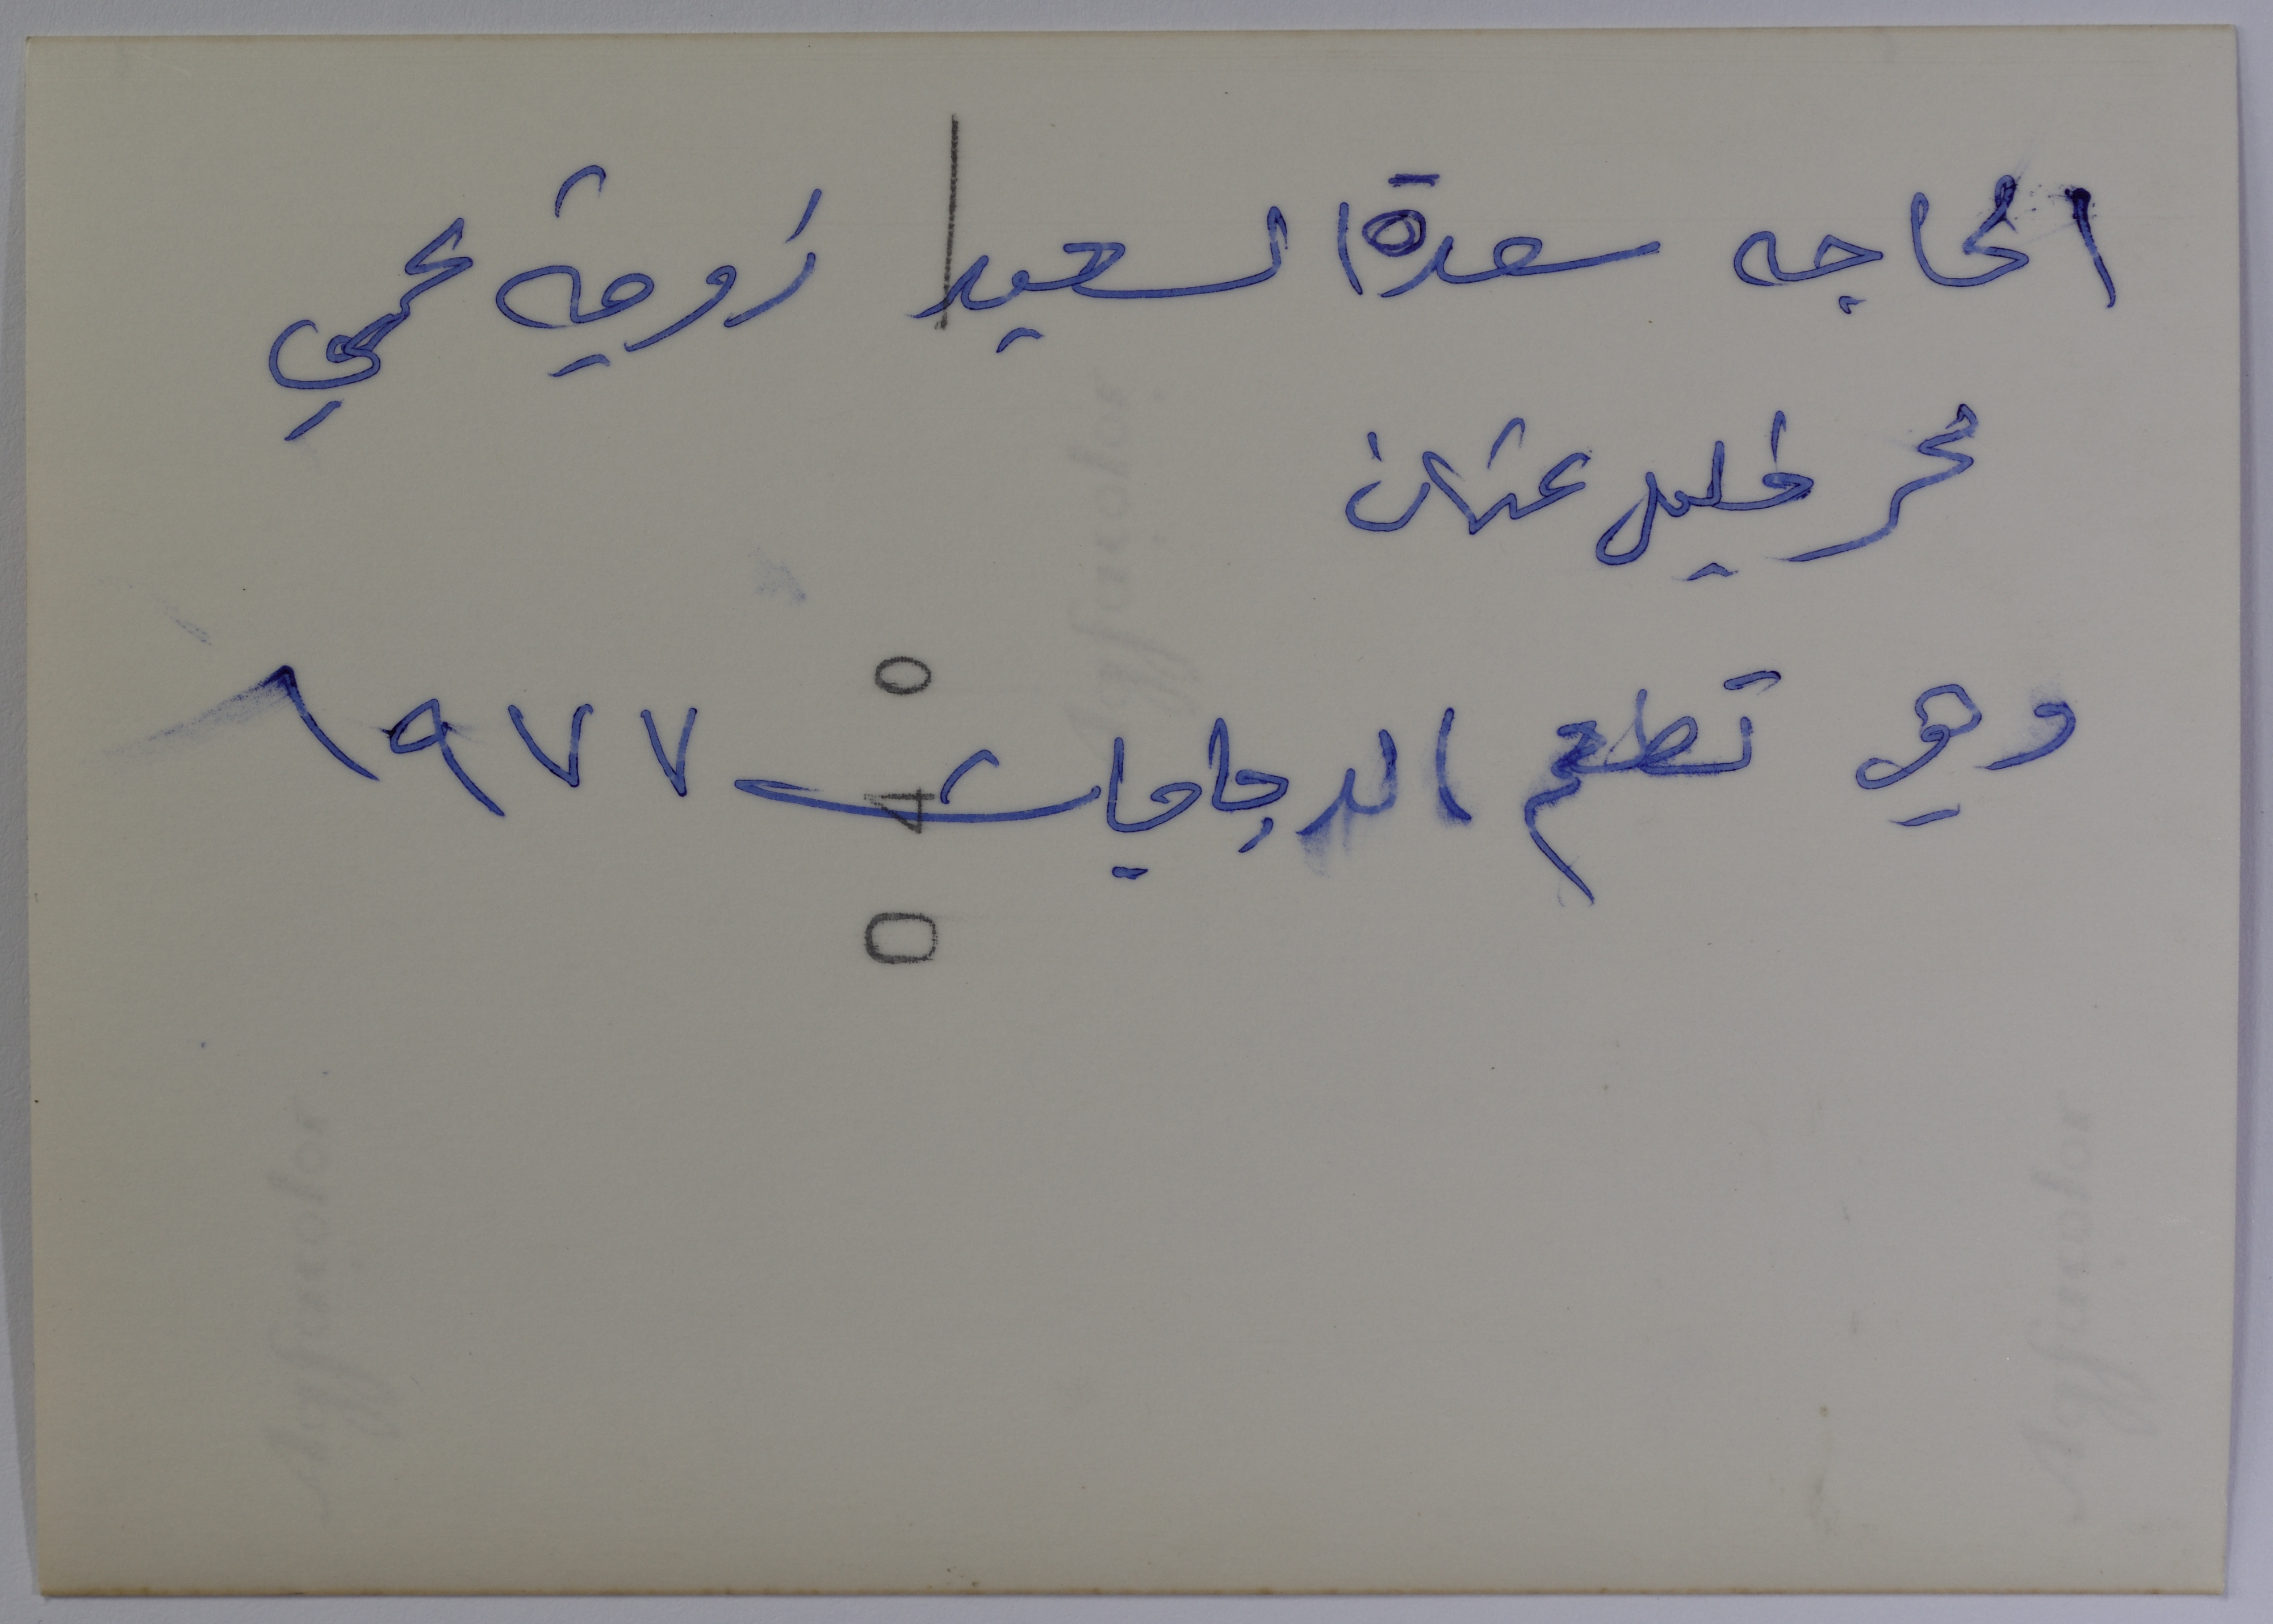 الحاجه سعدة السعيد زوجة عمي
محمد خليل عثمان
وهي تطعم الدجاجات ١٩٧٧
0 4 0
Agfacolor
Agfacolor
Agfacolor